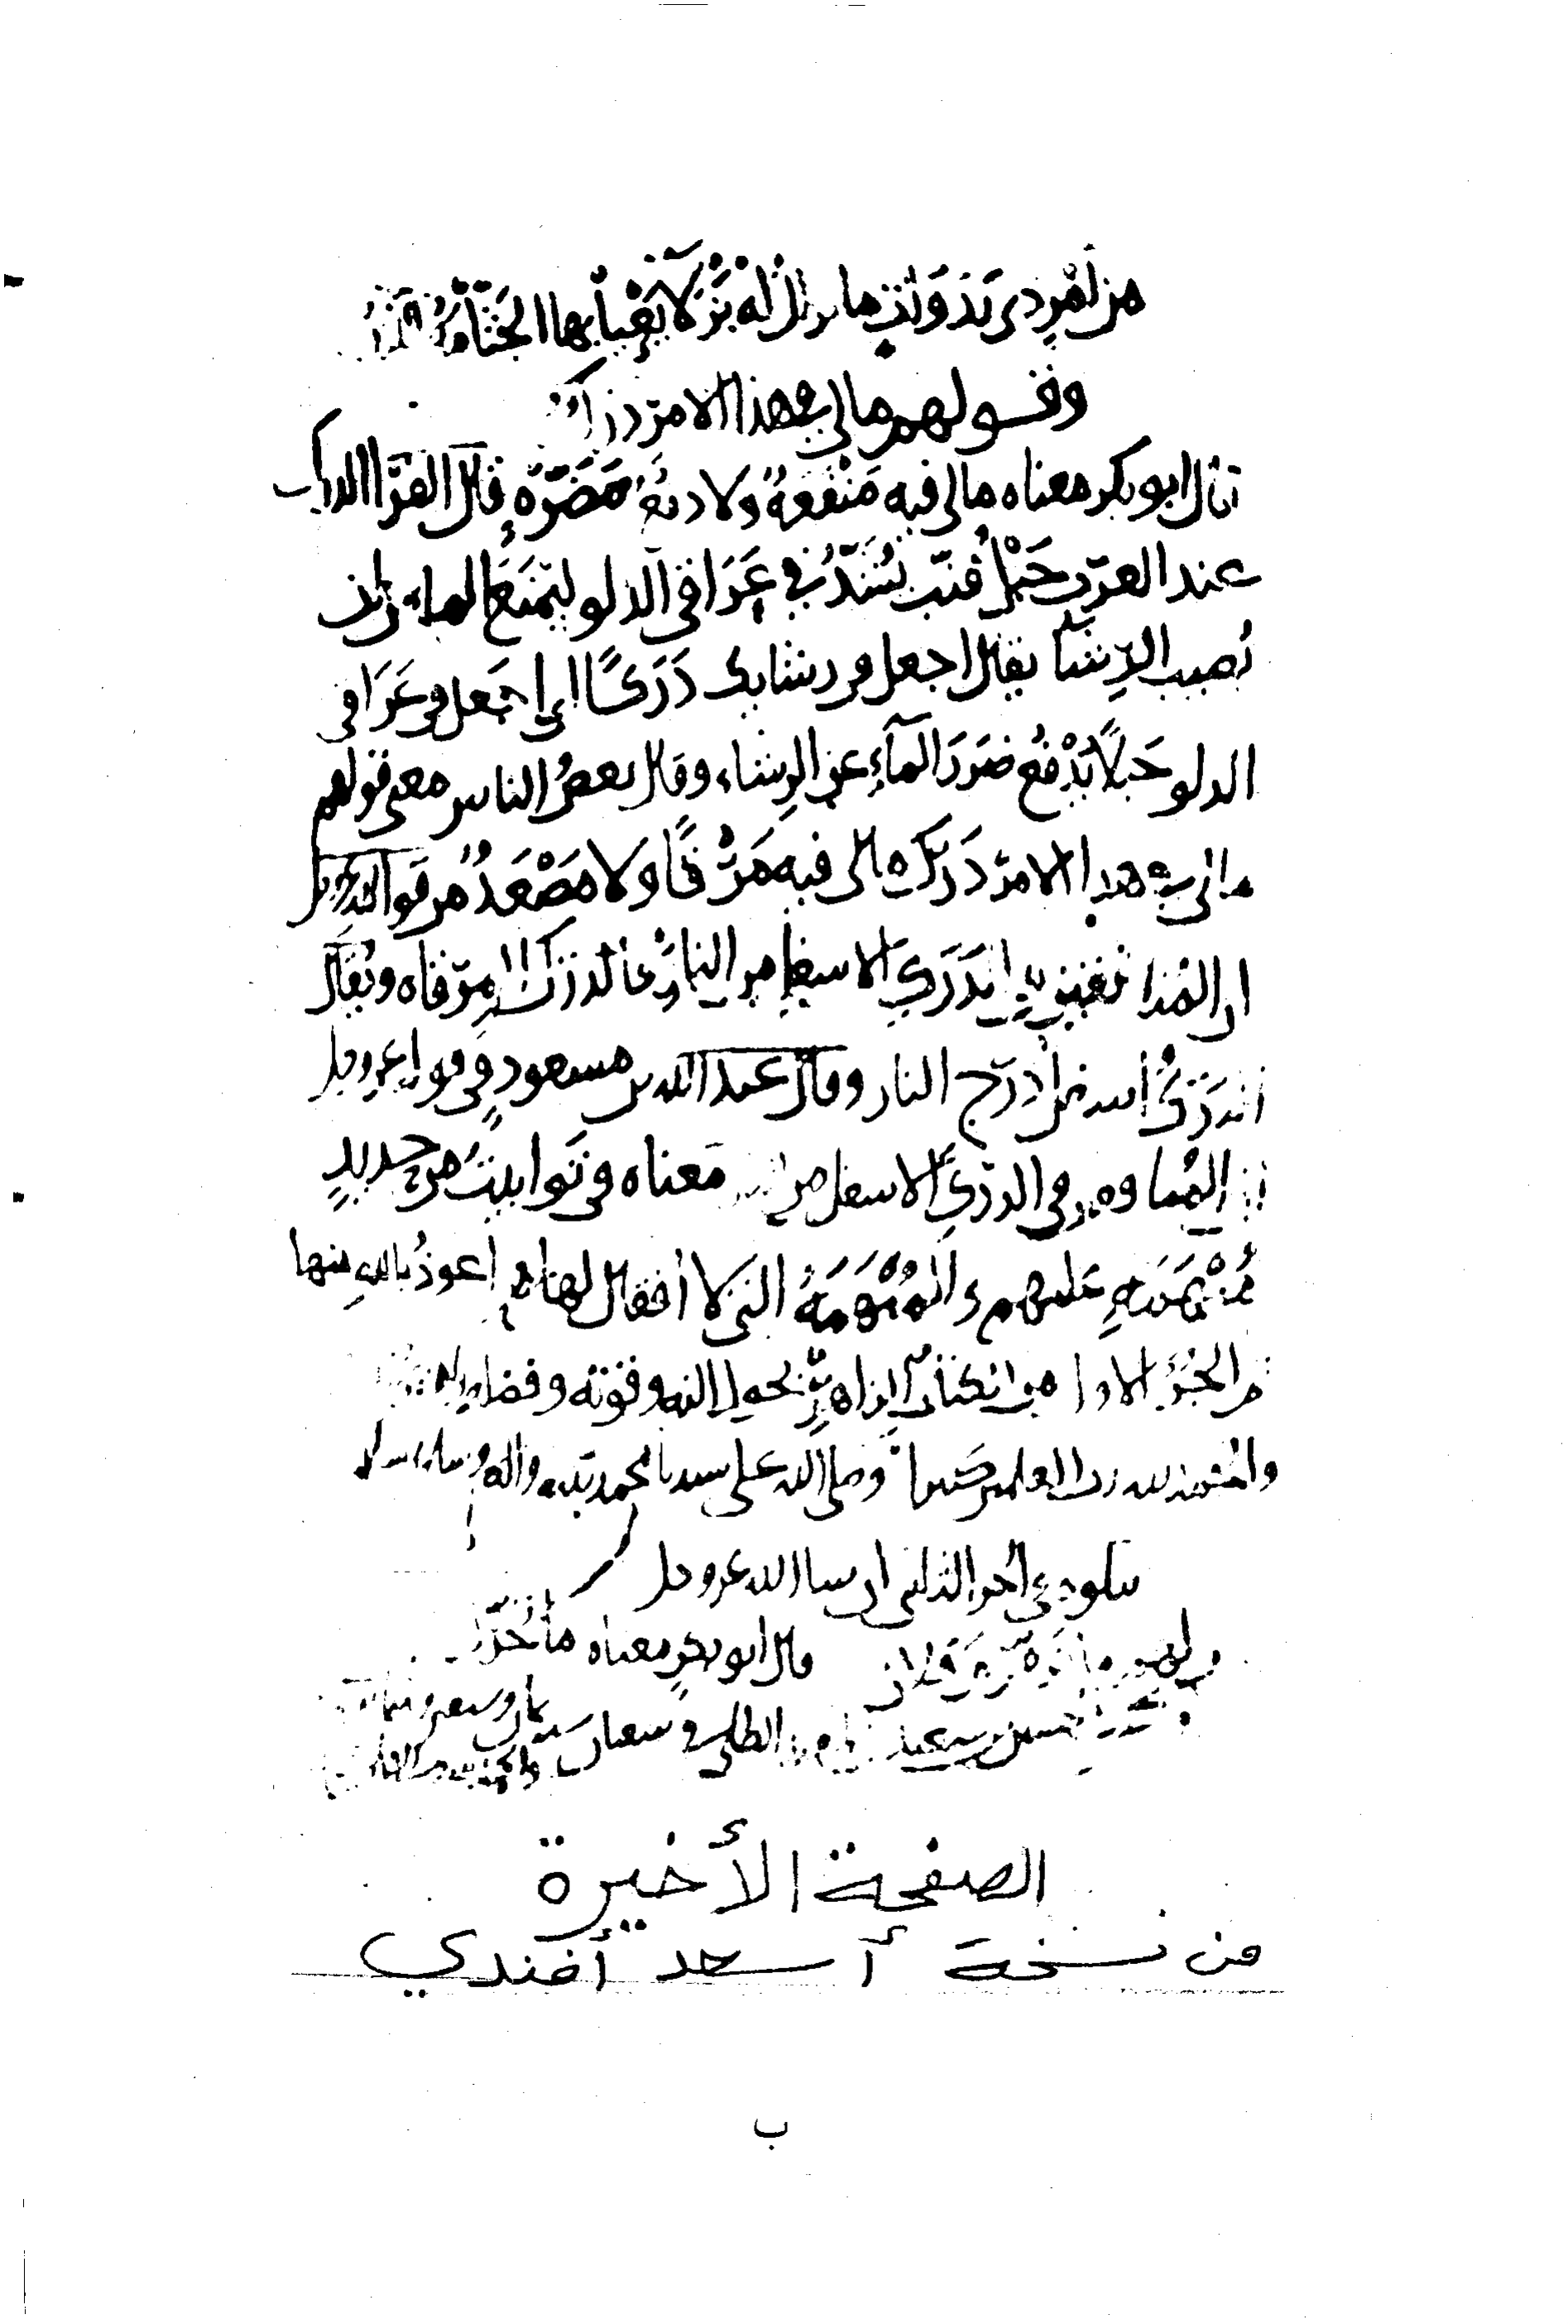 من امرِ ذى بَدَوَاتٍ ما يزال له بَزْلاءُ يَعْيا بها الجَثّامةُ
وقولهم ما لى فى هذا الامر دَرَك
قال ابو بكر معناه ما لى فيه مَنْفَعَةٌ ولا دفعُ مَضَرّةٍ قال الفرّا الدرك
عند العرب حَبْلُ قِنّب يُشَدُّ فى عَرَاقى الدلو ليَمْنَعَ الماء من ان
يُصيب الرِشآ يقال اجعل فى رشايك دَرَكًا اى اجعل فى عَرَاقى
الدلو حَبلاً يَدْفعُ ضَرَرَ المآءِ عن الرِشاء وقال بعضُ الناس معنى قولهم
ما لى فى هذا الامر دَرَك ما لى فيه مَرْقًا ولا مَصْعَدٌ من قول الله عز وجل
ان المُنافقين فى الدَرَكِ الاسفل من النارِ فالدرك المِرقاه ويُقال
الدَرَكُ اسفل دَرَج النار وقال عبد الله بن مسعودٍ فى قوله عز وجل
ان المنافقين فى الدرَكِ الاسفل من النار معناه فى تَوابيتَ من حديدٍ
مُبْهَمَةٍ عليهم والمُبْهَمَةُ التى لا أقفال لها اعوذُ باللهِ منها
تم الجُزْءُ الاول من كتاب الزاهر بحول الله وقوته وفضله
والحمد لله رب العلمين كثيرا وصلى الله على سيدنا محمد نبيه واله وسلامه
يتلوه فى الجز الثانى ان شا الله عز وجل
قال ابو بكرٍ معناه ما
حسن سعيد
الصفحة الأخيرة
من نسخة أسعد أفندي
ب